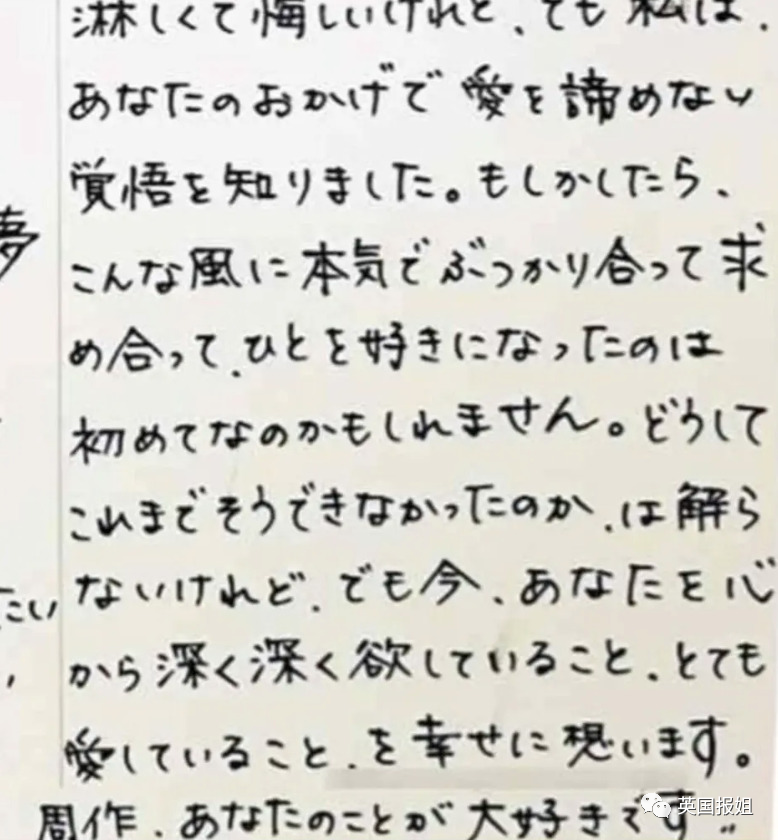 淋しくて悔しいけれど、でも私は、
あなたのおかげで愛を諦めない
覚悟を知りました。もしかしたら、
こんな風に本気でぶつかり合って求
め合って、ひとを好きになったのは
初めてなのかもしれません。どうして
これまでそうできなかったのか、は解ら
ないけれど、でも今、あなたを心
から深く深く欲していること、とても
愛していること、を幸せに想います。
周作、あなたのことが大好きです
夢
たい
英国报姐